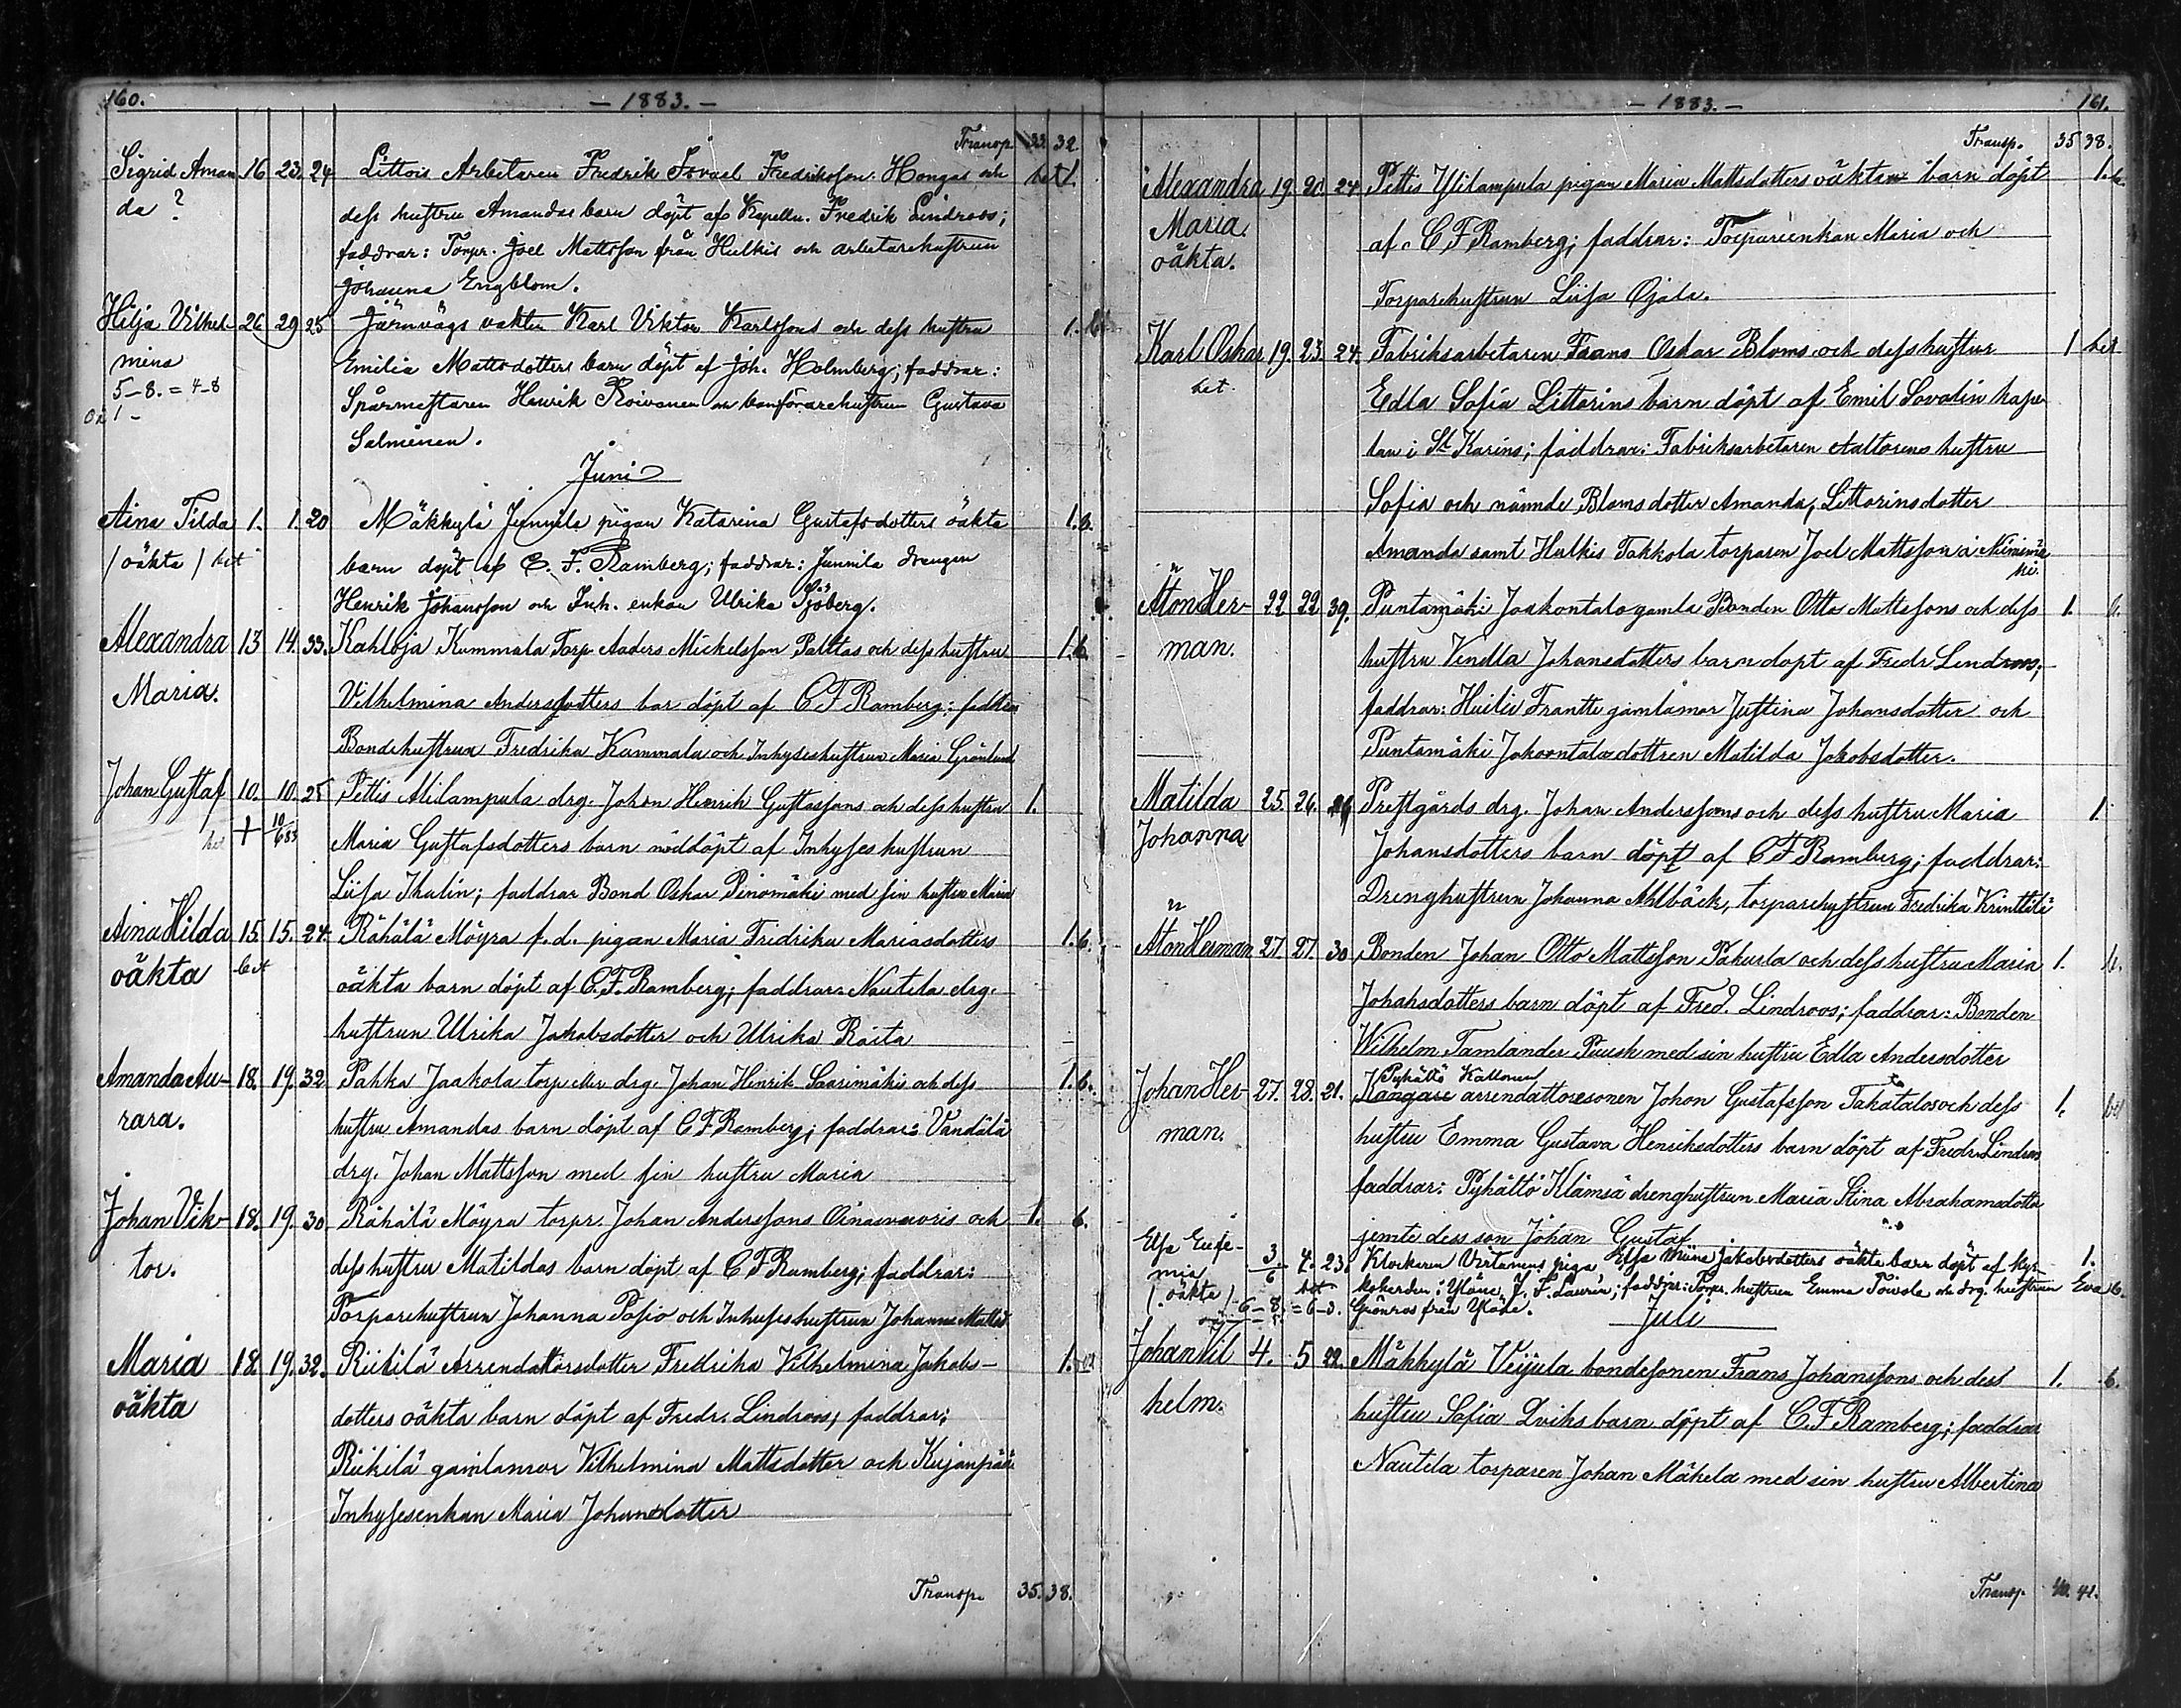 160.
— 1883. —
Transp. 33. 32
Sigrid Aman- 16 23. 24 Littois Arbetaren Fredrik Fredriksson Hongas och bet 1.
da ? dess hustru Amandas barn döpt af Kapelln. Fredrik Lindroos;
faddrar: Torpr. Joel Mattsson från Hulkis och arbetarehustrun
Johanna Engblom.
Hilja Vilhel- 26 29 25 Järnvägs vakten Karl Viktor Karlssons och dess hustru 1.
mina Emilia Mattsdotters barn döpt af Joh. Holmberg; faddrar:
5–8. = 4–8 Spårmestaren Henrik Roivanen och hustrun Gustava
Salminen.
Juni
Aina Tilda 1. 1. 20 Mäkkylä Junnila pigan Katarina Gustafsdotters oäkta 1. b.
/oäkta/ bet barn döpt af C. F. Ramberg; faddrar: Junnila drengen
Henrik Johansson och Inh. enkan Ulrika Sjöberg.
Alexandra 13 14. 33. Kahloja Kummala Torp Anders Mickelsson Palttas och dess hustru 1. b.
Maria. Vilhelmina Andersdotters bar döpt af C F Ramberg; faddrar
Bondehustrun Fredrika Kummala och Inhyseshustrun Maria Grönlund
Johan Gustaf 10. 10. 25 Pettis Alilampula drg. Johan Henrik Gustafssons och dess hustru 1.
bet + 10/6 83 Maria Gustafsdotters barn nöddöpt af Inhyses hustrun
Liisa Ihalin; faddrar Bond Oskar Pinomäki med sin hustru Maria
Aina Hilda 15 15. 24. Rähälä Möyra f.d. pigan Maria Fridrika Mariasdotters 1. b.
oäkta bet oäkta barn döpt af C. F. Ramberg; faddrar: Nautela drg.
hustrun Ulrika Jakobsdotter och Ulrika Raita
Amanda Au- 18. 19. 32 Pahka Jaakola torp eller drg. Johan Henrik Saarimäkis och dess 1. b.
rara. hustru Amandas barn döpt af C F Ramberg; faddrar: Vändälä
drg. Johan Mattsson med sin hustru Maria
Johan Vik- 18. 19. 30 Rähälä Möyra torpr. Johan Anderssons Oinasvuoris och 1. b.
tor. dess hustru Matildas barn döpt af C F Ramberg; faddrar:
Torparehustrun Johanna Pasio och Inhyseshustrun Johanna Matts
Maria 18. 19. 32. Riikilä Arrendatorsdotter Fredrika Vilhelmina Jakobs-
1. bet
oäkta dotters oäkta barn döpt af Fredr. Lindroos; faddrar:
Riikilä gamlamor Vilhelmina Mattsdotter och Kujanpää
Inhysesenkan Maria Johansdotter
Transp. 35. 38.
— 1883. — 161.
Transp. 35 38.
Alexandra 19. 20. 24. Pettis Ylilampula pigan Maria Mattsdotters oäkta barn döpt 1. b.
Maria. af C F Ramberg; faddrar: Torparienkan Maria och
oäkta. Torparehustrun Liisa Ojala.
Karl Oskar 19. 23. 24. Fabriksarbetaren Frans Oskar Bloms och dess hustrus 1 bet
bet. Edla Sofia Littorins barn döpt af Emil Sovelin kape-
lan i St Karins; faddrar: Fabriksarbetaren Aaltonens hustru
Sofia och nämnde Bloms dotter Amanda, Littorins dotter
Amanda samt Hulkis Takkola torparen Joel Mattsson i Niinimä-
ki.
Aton Her- 22 22 39. Puntamäki Jaakontalo gamla Bonden Otto Mattssons och dess 1. b.
man. hustru Vendla Johansdotters barn döpt af Fredr Lindroos;
faddrar: Huilis Frantti gamlamor Justina Johansdotter och
Puntamäki Jakoontalodottren Matilda Jakobsdotter.
Matilda 25. 26. Prestgårds drg. Johan Anderssons och dess hustru Maria 1
Johanna Johansdotters barn döpt af C F Ramberg; faddrar:
Drenghustrun Johanna Ahlbäck, torparehustrun Fredrika Krinttilä
Aton Herman 27. 27. 30 Bonden Johan Otto Mattsson Pakurla och dess hustru Maria 1. b.
Johansdotters barn döpt af Fred. Lindroos; faddrar: Bonden
Wilhelm Tamlander Puusk med sin hustru Edla Andersdotter
Pyhältö Kallonen
Johan Her- 27. 28. 21. Kangare arrendattoresonen Johan Gustafsson Takatalos och dess 1. bet
man. hustru Emma Gustava Henriksdotters barn döpt af Fredr. Lindroos
faddrar: Pyhältö Klämsä drenghustrun Maria Stina Abrahamsdotter
jemte dess son Johan Gustaf
Elsa Eufe- 3/6 4. 23. Klockaren Virtanens piga Elsa Miina Jakobsdotters oäkta barn döpt af kyr- 1.
mia bet koherden i Yläne, J. F. Laurén; faddrar: Torpr. hustrun Emma Toivola och drg. hustrun Eva b.
/oäkta/ 6–8. = 6–8. Grönros från Yläne.
Juli
Johan Vil 4. 5 22. Mäkkylä Veijula bondesonen Frans Johanssons och dess 1. b.
helm. hustru Sofia Qviks barn döpt af C. F. Ramberg; faddrar
Nautela torparen Johan Mäkelä med sin hustru Albertina
Transp. 40. 41.